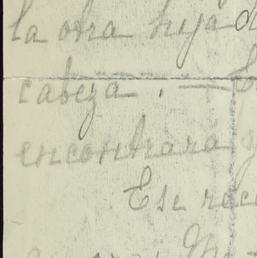 la otra hija d
cabeza. — E
encontrara y
Ese rec